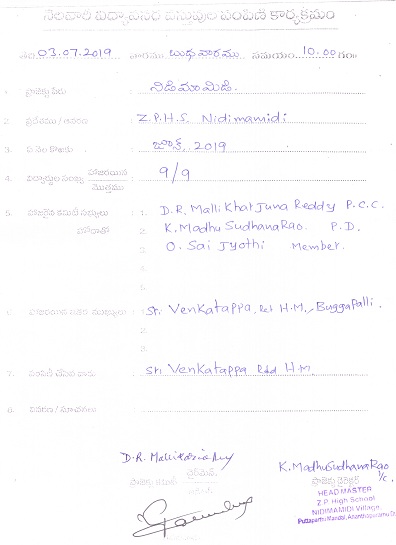 నెలవారీ విద్యావసర వస్తువుల పంపిణీ కార్యక్రమం
తేది 03.07.2019 వారము బుధవారము సమయం 10.00 గం.
1. ప్రాజెక్టు పేరు నిడిమామిడి.
2. ప్రదేశము / Z.P.H.S. Nidimamidi
3. ఏ నెల కొరకు జూన్, 2019
4. విద్యార్థుల సంఖ్య హాజరయిన 9/9
మొత్తము
5. హాజరైన కమిటీ సభ్యులు 1. D.R. Mallikharjuna Reddy P.C.C.
2. K. Madhu Sudhana Rao. P.D.
3. O. Sai Jyothi Member.
4.
5.
6. ఇతర ముఖ్యులు 1. Sri Venkatappa, Ret H.M., Buggapalli.
2.
3.
7. పంపిణీ చేసిన వారు Sri Venkatappa Rtd H.M.
8. వివరణ / సూచనలు
D.R. Mallikarjuna Reddy
ఛైర్మన్
ప్రాజెక్టు కమిటీ
K. MadhuSudhana Rao
ప్రాజెక్టు డైరెక్టర్ I/c.
HEAD MASTER
Z.P. High School
NIDIMAMIDI Village,
Puttaparthi Mandal, Ananthapuramu Dt.